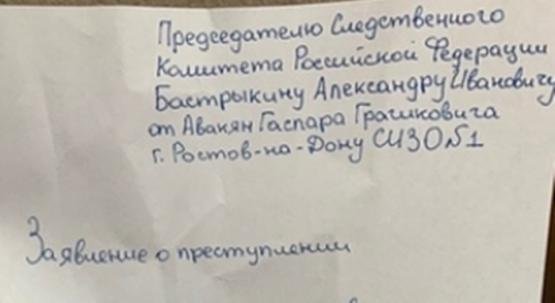 Председателю Следственного
Комитета Российской Федерации
Бастрыкину Александру Ивановичу
от Авакян Гаспара Грачиковича
г. Ростов-на-Дону СИЗО №1
Заявление о преступлении